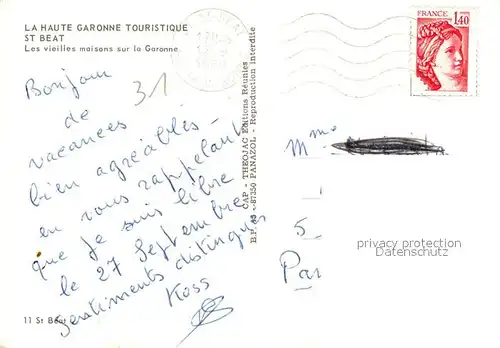 LA HAUTE GARONNE TOURISTIQUE
ST BEAT
Les vieilles maisons sur la Garonne
31
Bonjour
de
vacances
bien agréables -
en vous rappelant
que je suis libre
le 27 Septembre
sentiments distingués
Koss
11 St Béat
CAP - THEOJAC Editions Réunies
B.P. 45 - 87350 PANAZOL - Reproduction interdite
FRANCE
1,40
Mme
5
Par
privacy protection
Datenschutz